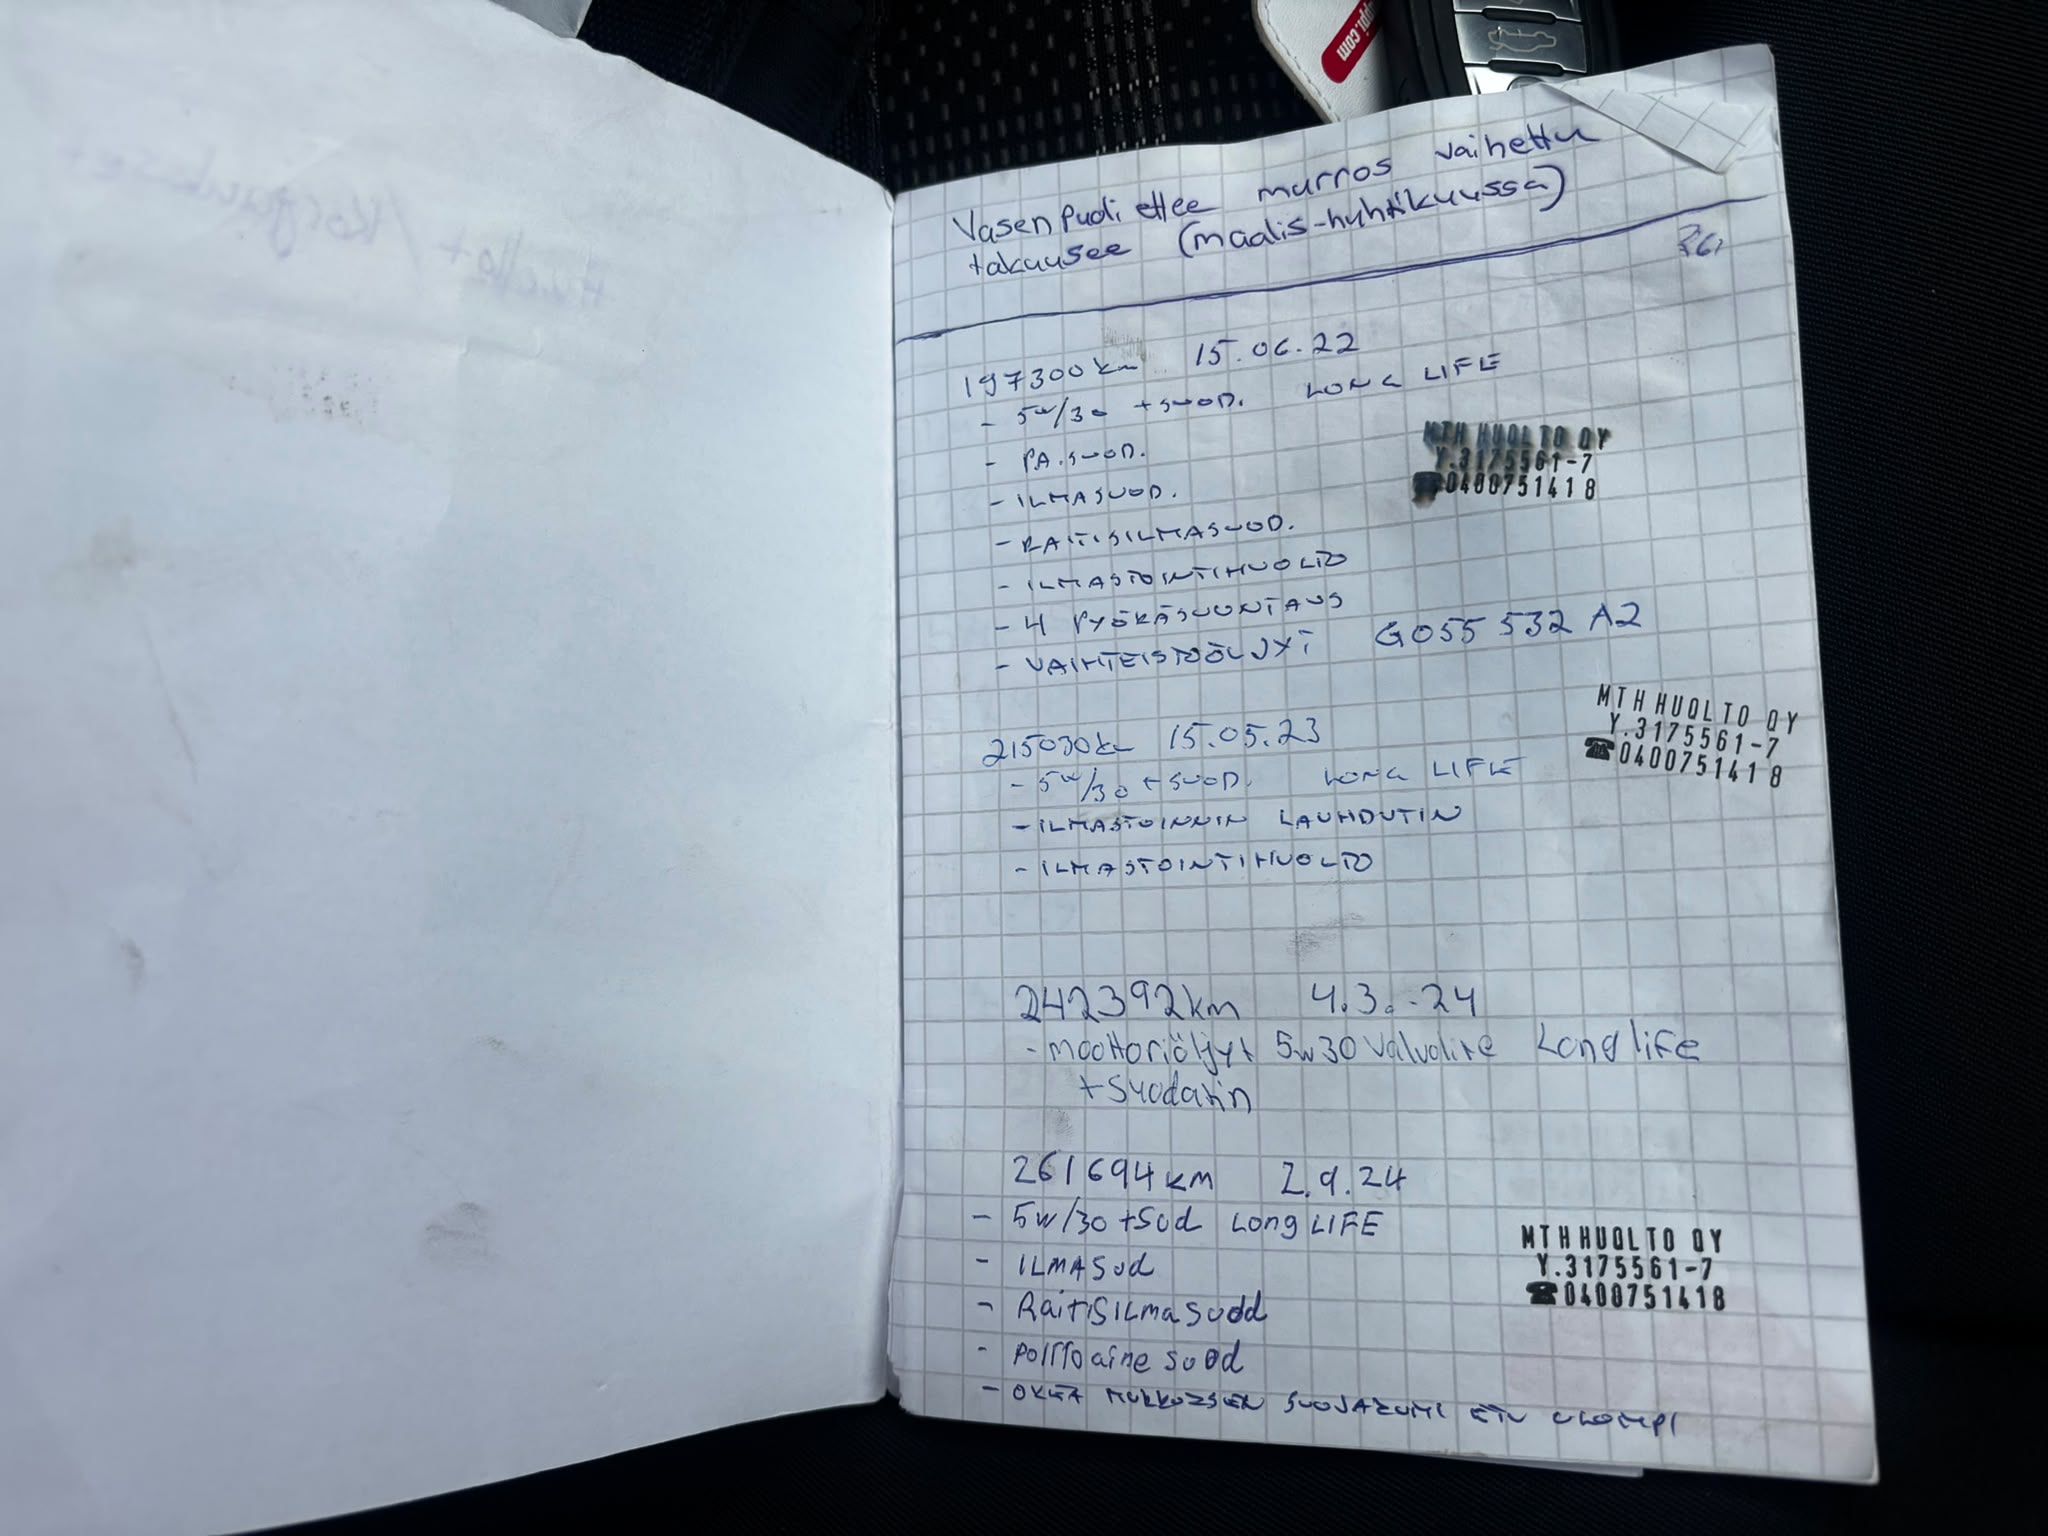 Vasen puoli ettee murros vaihettu
takuusee (maalis-huhtikuussa)
197300 km 15.06.22
- 5W/30 + SUOD. LONG LIFE
- PA.SUOD.
- ILMASUOD.
- RAITISILMASUOD.
- ILMASTOINTIHUOLTO
- 4 PYÖRÄSUUNTAUS
- VAIHTEISTOÖLJYT G055 532 A2
MTH HUOLTO OY
Y.3175561-7
☎0400751418
215030km 15.05.23
- 5W/30 + SUOD. LONG LIFE
- ILMASTOINNIN LAUHDUTIN
- ILMASTOINTIHUOLTO
MTH HUOLTO OY
Y.3175561-7
☎0400751418
242392km 4.3.-24
- moottoriöljyt 5w30 Valvoline Longlife
+ suodatin
261694km 2.9.24
- 5W/30 + Suod Long LIFE
- ILMASuod
- RaitisILmasuodd
- polttoaine suod
- OIKEA MURROKSEN SUOJAKUMI ETU ULOMPI
MTH HUOLTO OY
Y.3175561-7
☎0400751418
ppi.com